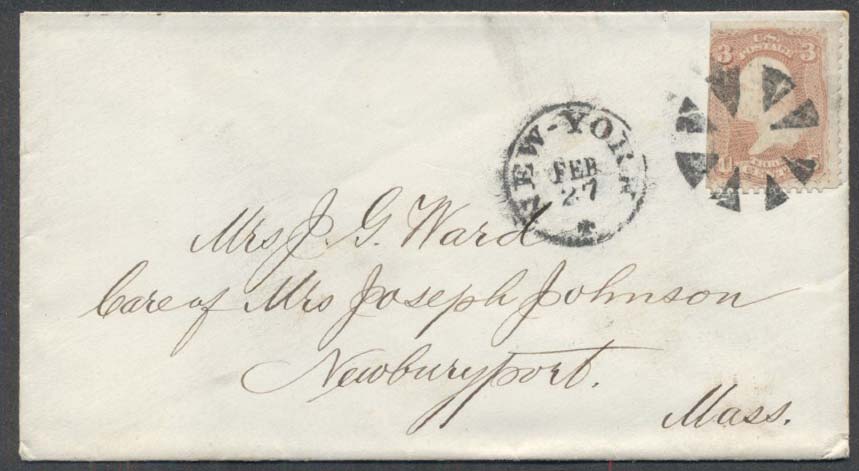 3 U.S. POSTAGE 3
NEW-YORK
FEB
27
Mrs J. G. Ward
Care of Mrs Joseph Johnson
Newburyport.
Mass.